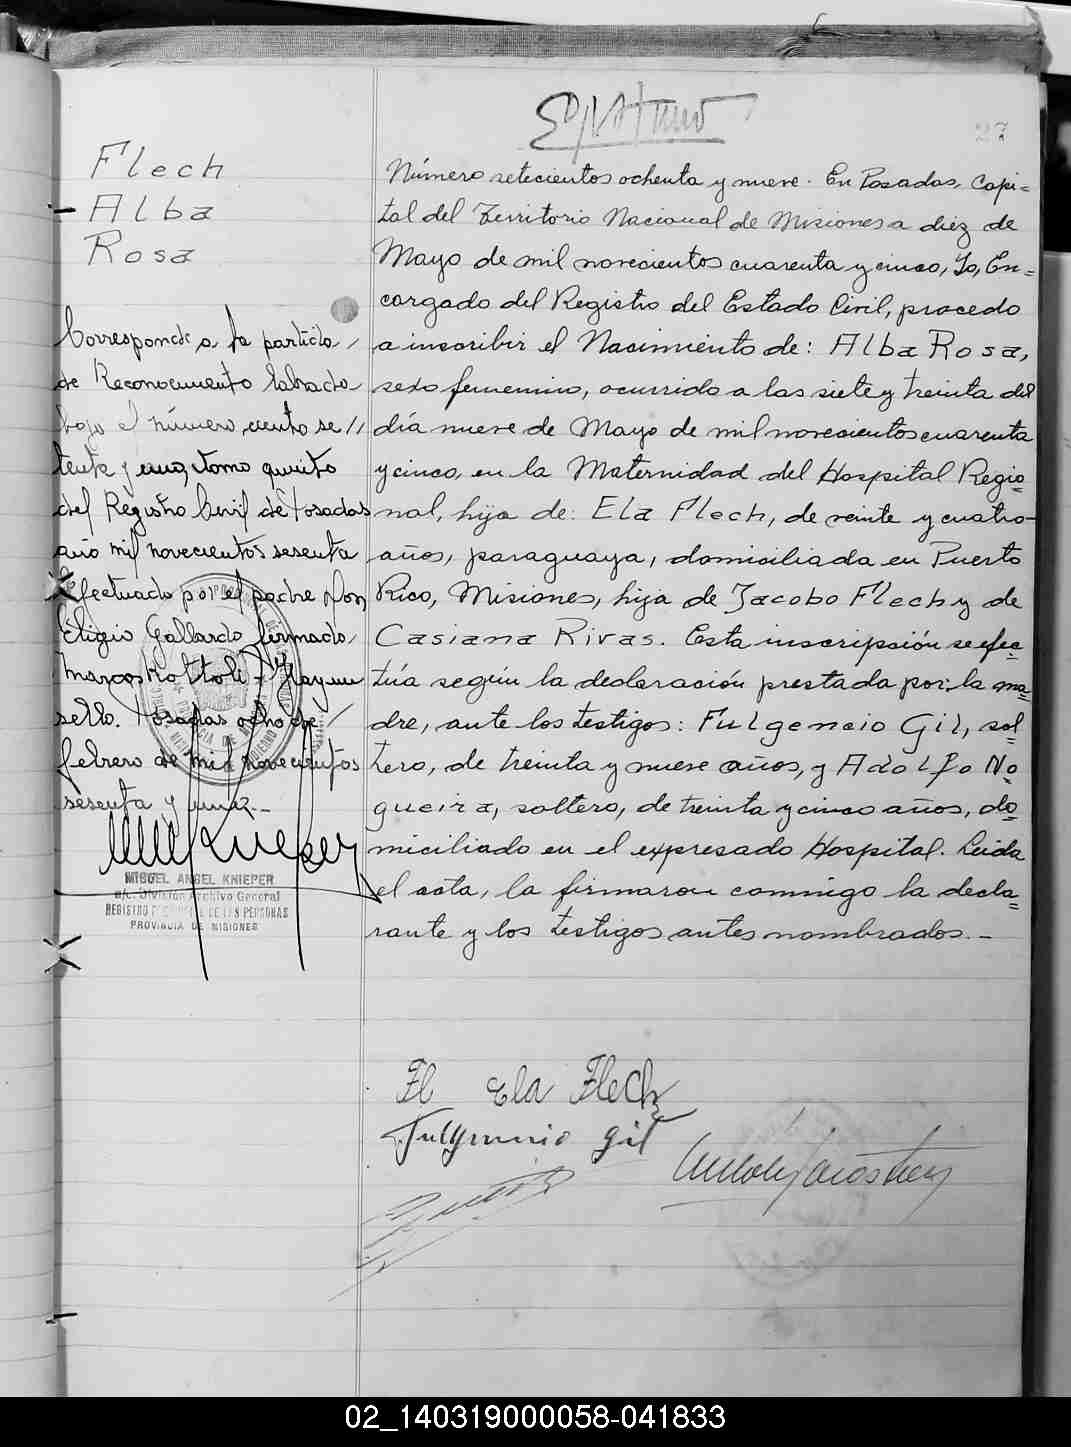 27
Flech
Alba
Rosa
Número setecientos ochenta y nueve. En Posadas, Capi=
tal del Territorio Nacional de Misiones a diez de
Mayo de mil novecientos cuarenta y cinco, Yo, En=
cargado del Registro del Estado Civil, procedo
a inscribir el Nacimiento de: Alba Rosa,
sexo femenino, ocurrido a las siete y treinta del
día nueve de Mayo de mil novecientos cuarenta
y cinco, en la Maternidad del Hospital Regio=
nal, hija de: Ela Flech, de veinte y cuatro
años, paraguaya, domiciliada en Puerto
Rico, Misiones, hija de Jacobo Flech y de
Casiana Rivas. Esta inscripsión se efec=
túa según la declaración prestada por la ma=
dre, ante los testigos: Fulgencio Gil, sol=
tero, de treinta y nueve años, y Adolfo No=
gueira, soltero, de treinta y cinco años, do=
miciliado en el expresado Hospital. Leida
el acta, la firmaron conmigo la decla=
rante y los testigos antes nombrados.-
Corresponde a la partida
de Reconocimiento labrada
bajo el número ciento se//
tenta y uno, tomo quinto
del Registro Civil de Posadas
año mil novecientos sesenta
Efectuado por el padre don
Eligio Gallardo, firmado,
Marcos Hay un
sello. Posadas ocho de/
febrero de mil novecientos
sesenta y uno.-
MIGUEL ANGEL KNIEPER
a/c. División Archivo General
REGISTRO DE LAS PERSONAS
PROVINCIA DE MISIONES
Fl Ela Flech
Fulgencio Gil
02_140319000058-041833